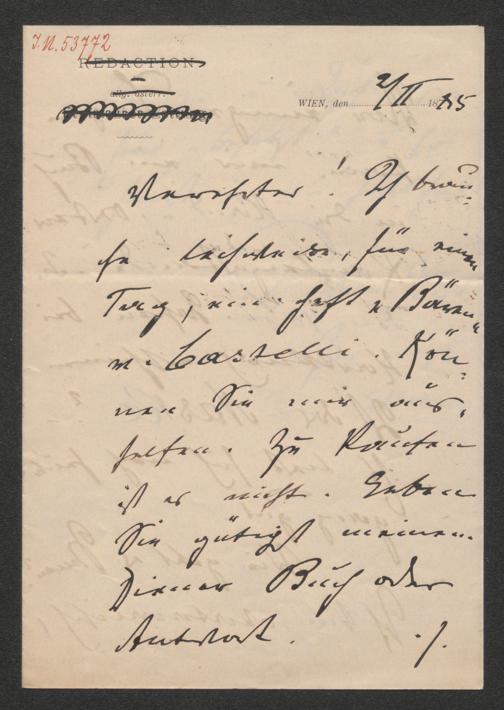 J.N. 53772
REDACTION
allg. österr.
WIEN, den 2/II 1875
Verehrter! Ich brau-
che leihweise, für einen
Tag, ein Heft „Bären“
v. Castelli. Kön-
nen Sie mir aus-
helfen. Zu kaufen
ist es nicht. Geben
Sie gütigst meinem
Diener Buch oder
Antwort.